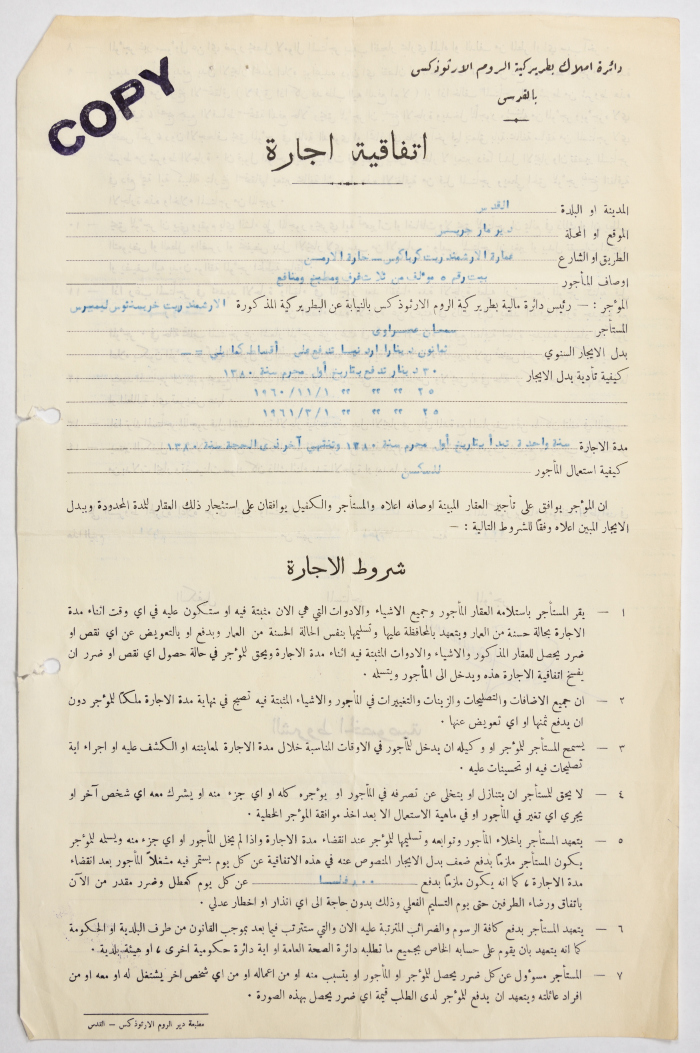 COPY
دائرة املاك بطريركية الروم الارثوذكس
بالقدس
اتفاقية اجارة
المدينة او البلدة القدس
الموقع او المحلة دير مار جريس
الطريق او الشارع عمارة الارشمندريت كرياكوس – حارة الارمن
اوصاف المأجور بيت رقم ٥ مؤلف من ثلاث غرف ومطبخ ومنافع
المؤجر : – رئيس دائرة مالية بطريركية الروم الارثوذكس بالنيابة عن البطريركية المذكورة الارشمندريت خريسنثوس
المستأجر سمعان
بدل الايجار السنوي ثمانون دينارا اردنيا تدفع على أقساط كما يلي = –
كيفية تأدية بدل الايجار ٣٠ دينار تدفع بتاريخ أول محرم سنة ١٣٨٠
٢٥ " " " ١٩٦٠/١١/١
٢٥ " " " ١٩٦١/٣/١
مدة الاجارة سنة واحدة تبدأ بتاريخ أول محرم سنة ١٣٨٠ وتنتهي آخر ذي الحجة سنة ١٣٨٠
كيفية استعمال المأجور للسكن
ان المؤجر يوافق على تأجير العقار المبينة اوصافه اعلاه والمستأجر والكفيل يوافقان على استئجار ذلك العقار للمدة المحدودة وببدل
الايجار المبين اعلاه وفقا للشروط التالية : –
شروط الاجارة
١ – يقر المستأجر باستلامه العقار المأجور وجميع الاشياء والادوات التي هي الان مثبتة فيه او ستكون عليه في اي وقت اثناء مدة
الاجارة بحالة حسنة من العمار ويتعهد بالمحافظة عليها وتسليمها بنفس الحالة الحسنة من العمار وبدفع او بالتعويض عن اي نقص او
ضرر يحصل للعقار المذكور والاشياء والادوات المثبتة فيه اثناء مدة الاجارة ويحق للمؤجر في حالة حصول اي نقص او ضرر ان
يفسخ اتفاقية الاجارة هذه ويدخل الى المأجور ويتسلمه .
٢ – ان جميع الاضافات والتصليحات والزينات والتغييرات في المأجور والاشياء المثبتة فيه تصبح في نهاية مدة الاجارة ملكا للمؤجر دون
ان يدفع ثمنها او اي تعويض عنها .
٣ – يسمح المستأجر للمؤجر او وكيله ان يدخل للمأجور في الاوقات المناسبة خلال مدة الاجارة لمعاينته او الكشف عليه او اجراء اية
تصليحات فيه او تحسينات عليه .
٤ – لا يحق للمستأجر ان يتنازل او يتخلى عن تصرفه في المأجور او يؤجره كله او اي جزء منه او يشرك معه اي شخص آخر او
يجري اي تغير في المأجور او في ماهية الاستعمال الا بعد اخذ موافقة المؤجر الخطية .
٥ – يتعهد المستأجر باخلاء المأجور وتوابعه وتسليمها للمؤجر عند انقضاء مدة الاجارة واذا لم يخل المأجور او اي جزء منه ويسلمه للمؤجر
يكون المستأجر ملزما بدفع ضعف بدل الايجار المنصوص عنه في هذه الاتفاقية عن كل يوم يستمر فيه مشغلاً المأجور بعد انقضاء
مدة الاجارة ، كما انه يكون ملزما بدفع ٥٠٠ فلسا عن كل يوم كعطل وضرر مقدر من الآن
باتفاق ورضاء الطرفين حتى يوم التسليم الفعلي وذلك بدون حاجة الى اي انذار او اخطار عدلي .
٦ – يتعهد المستأجر بدفع كافة الرسوم والضرائب المترتبة عليه الان والتي ستترتب فيما بعد بموجب القانون من طرف البلدية او الحكومة
كما انه يتعهد بان يقوم على حسابه الخاص بجميع ما تطلبه دائرة الصحة العامة او اية دائرة حكومية اخرى ، او هيئة بلدية .
٧ – المستأجر مسؤول عن كل ضرر يحصل للمؤجر او المأجور او يتسبب منه او من اعماله او من اي شخص اخر يشتغل له او معه او من
افراد عائلته ويتعهد ان يدفع للمؤجر لدى الطلب قيمة اي ضرر يحصل بهذه الصورة .
مطبعة دير الروم الارثوذكس – القدس